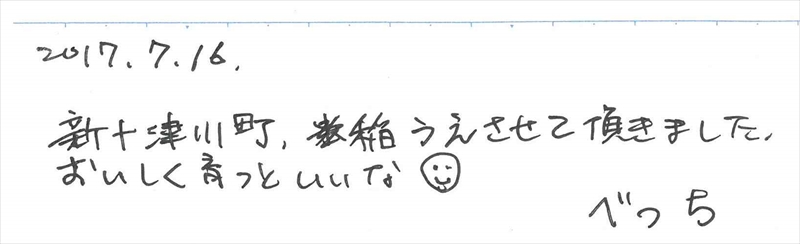 2017.7.16.
新十津川町、数稲うえさせて頂きました.
おいしく育っといいな
べっち